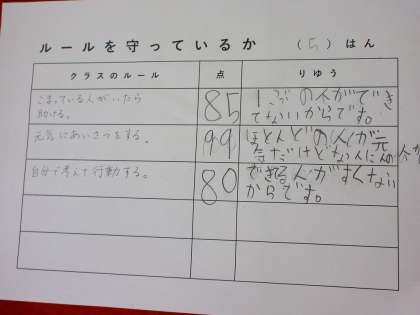 ルールを守っているか (5)はん
クラスのルール 点 りゆう
こまっている人がいたら
助ける。
85
の人ができ
てないからです。
元気にあいさつをする。
99
ほとんどの人が元
気だけど
自分で考えて行動する。
80
できてる人がすくない
からです。